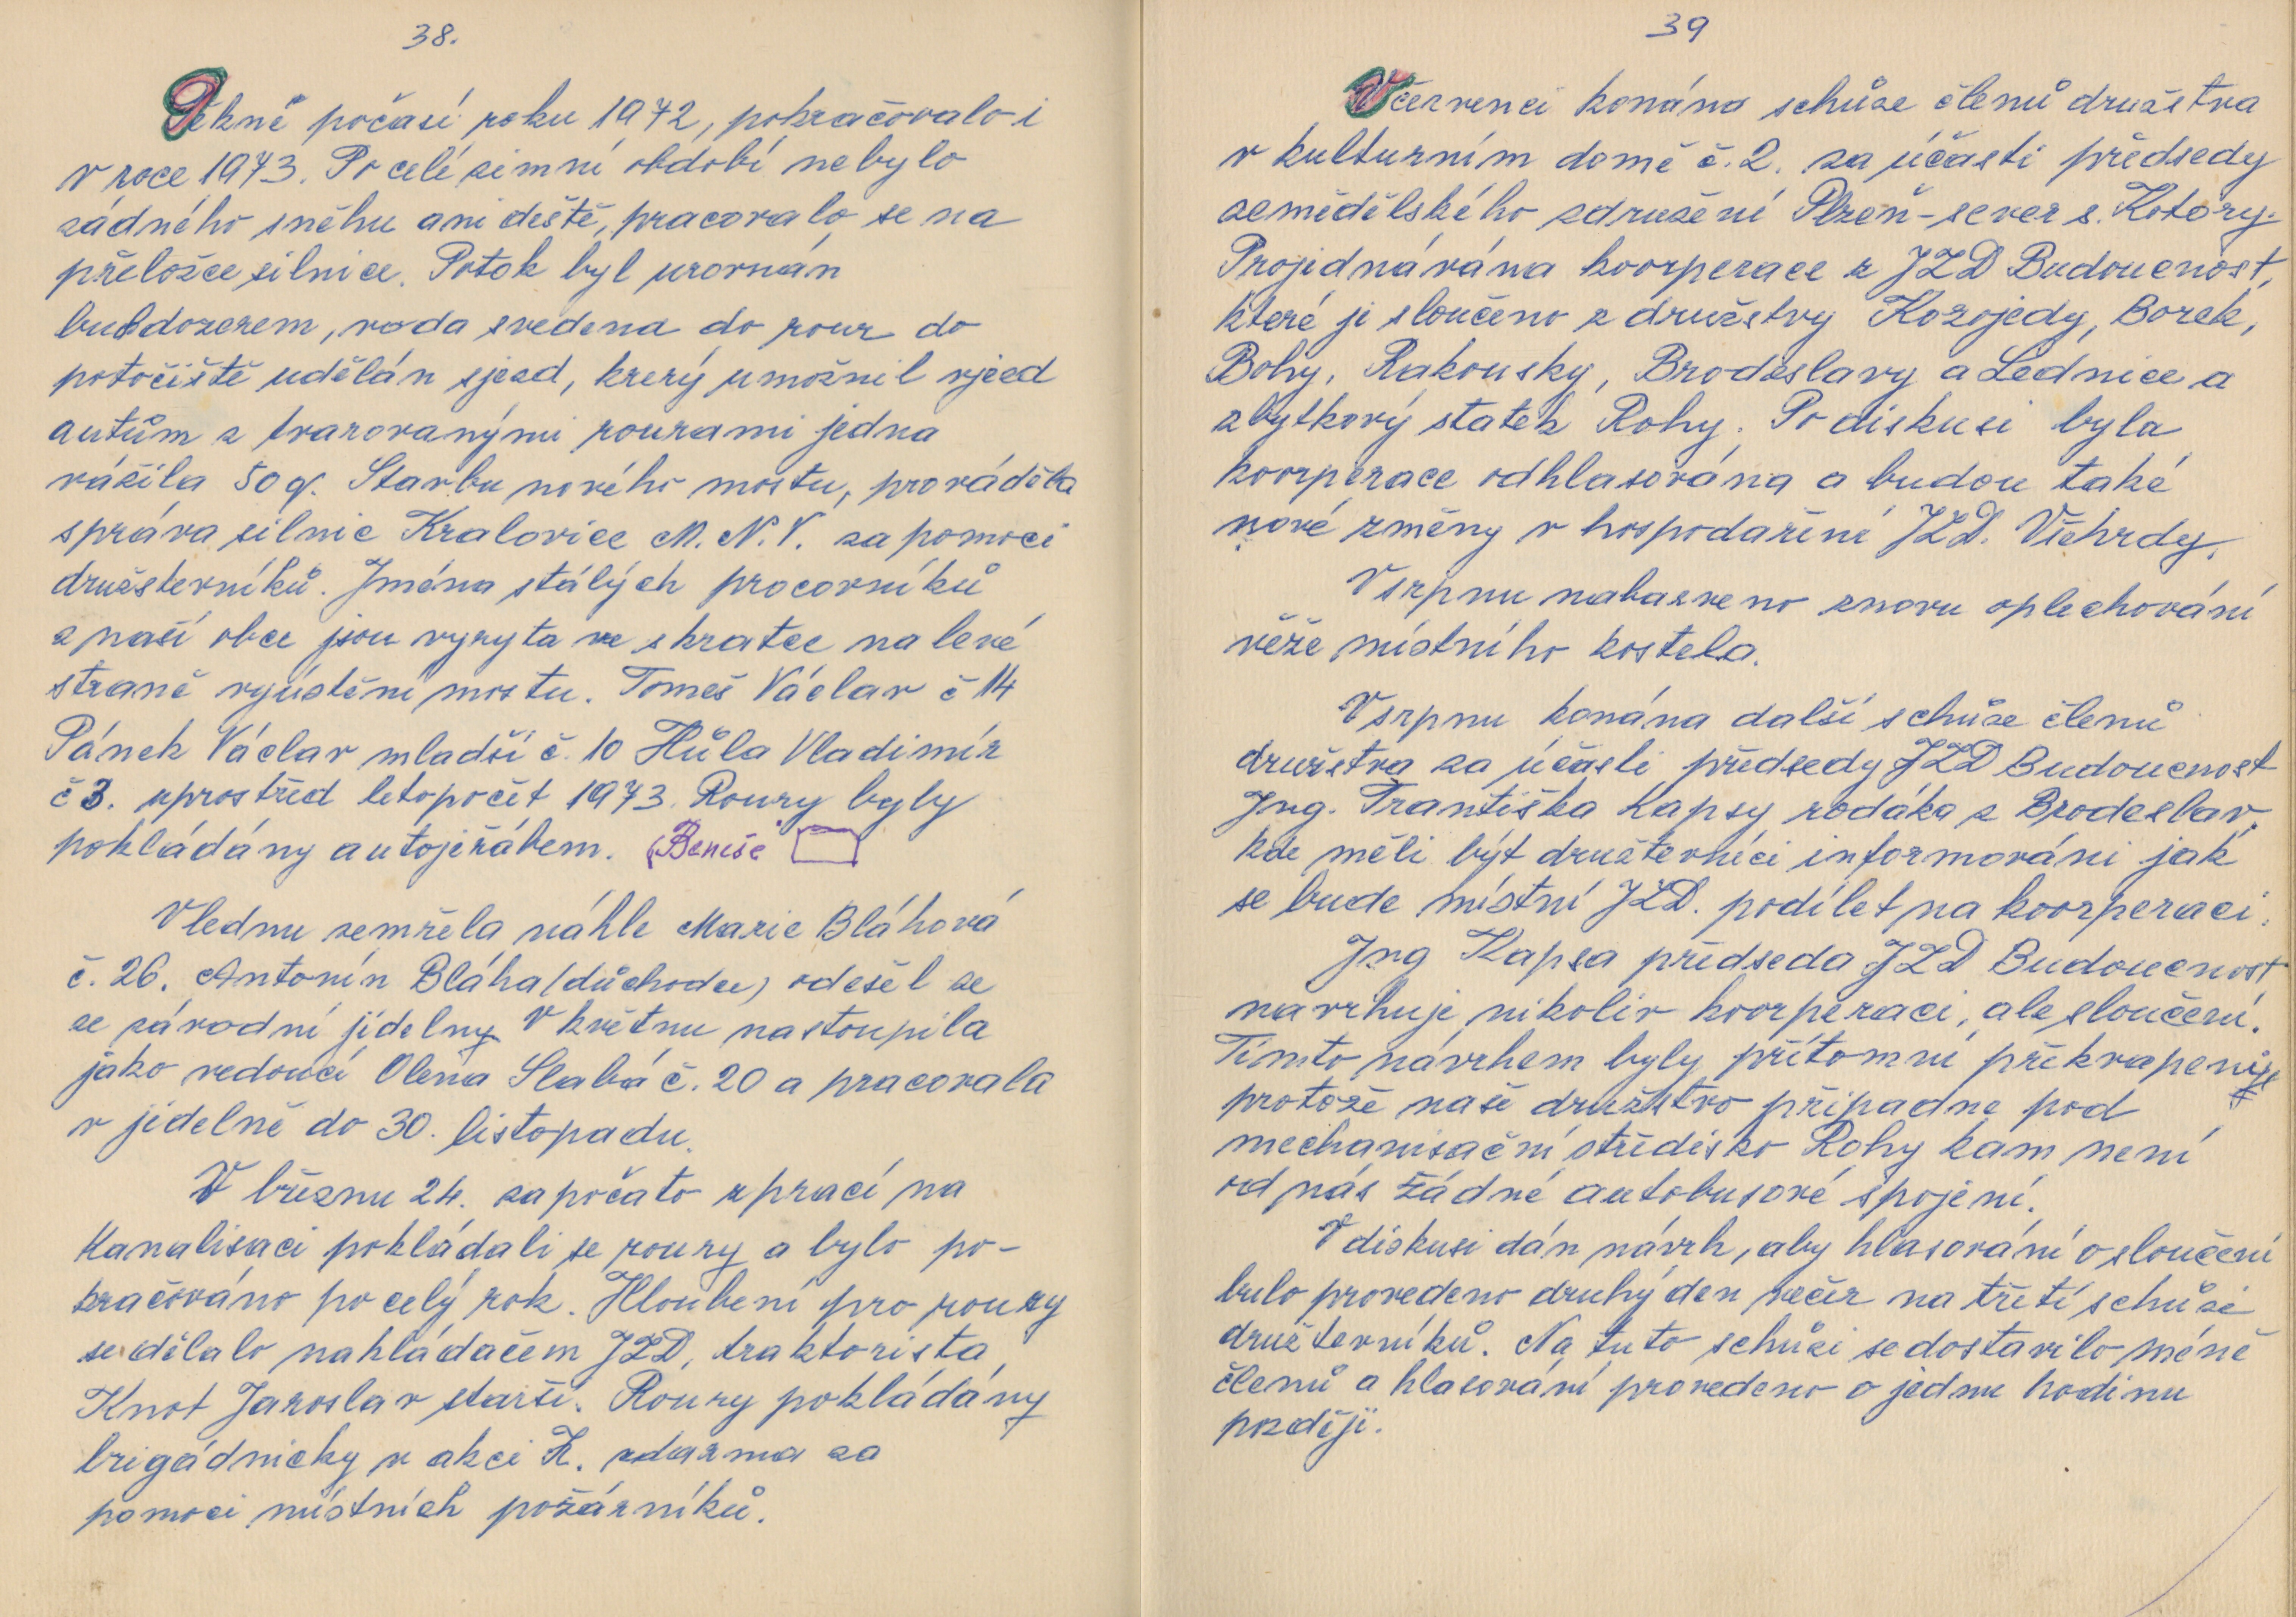 38.
Pěkné počasí roku 1972, pokračovalo i
v roce 1973. Po celé zimní období nebylo
žádného sněhu ani deště, pracovalo se na
přeložce silnice. Potok byl urovnán
buldozerem, voda svedena do rour do
potočiště udělán sjezd, krerý umožnil vjezd
autům s tvarovanými rourami jedna
vážila 50 q. Stavbu nového mostu, prováděla
správa silnic Kralovice M.N.V. za pomoci
družsterníků. Jména stálých pracovníků
z naší obce jsou vyryta ve skratce na levé
straně vyústění mostu. Tomeš Václav č 14
Pánek Václav mladší č. 10 Hůla Vladimír
č 3. uprostřed letopočet 1973. Roury byly
pokládány autojeřábem. (Beneše
V lednu zemřela náhle Marie Bláhová
č. 26. Antonín Bláha (důchodce) odešel ze
ze závodní jídelny V květnu nastoupila
jako vedoucí Olena Slabá č. 20 a pracovala
v jídelně do 30. listopadu.
V březnu 24. započato s prací na
kanalisaci pokládali se roury a bylo po-
kračováno po celý rok. Hloubení pro roury
se dělalo nakládačem JZD, traktorista
Knot Jaroslav starší. Roury pokládány
brigádnicky v akci Z. zdarma za
pomoci místních požárníků.
39
V červenci konána schůze členů družstva
v kulturním domě č. 2. za účasti předsedy
zemědělského sdružení Plzeň-sever s. Kotory.
Projednávána koorperace z JZD Budoucnost,
které je sloučeno z družstvy Kozojedy, Borek,
Bohy, Rakousky, Brodeslavy a Lednice a
zbytkový statek Rohy. Po diskusi byla
koorperace odhlasována a budou také
nové změny v hospodaření JZD. Všehrdy.
V srpnu nabarveno znovu oplechování
věže místního kostela.
V srpnu konána další schůze členů
družstva za účasti předsedy JZD Budoucnost
Jng. Františka Kapsy rodáka z Brodeslav,
kde měli být družterníci informováni jak
se bude místní JZD. podílet na koorperaci.
Jng Kapsa předseda JZD Budoucnost
navrhuje nikoliv koorperaci, ale sloučení.
Tímto návrhem byly přítomní překvapeni
protože naše družstvo připadne pod
mechanisační středisko Rohy kam není
od nás žádné autobusové spojení.
V diskusi dán návrh, aby hlasování o sloučení
bulo provedeno druhý den večer na třetí schůzi
družterníků. Na tuto schůzi se dostavilo méně
členů a hlasování provedeno o jednu hodinu
později.